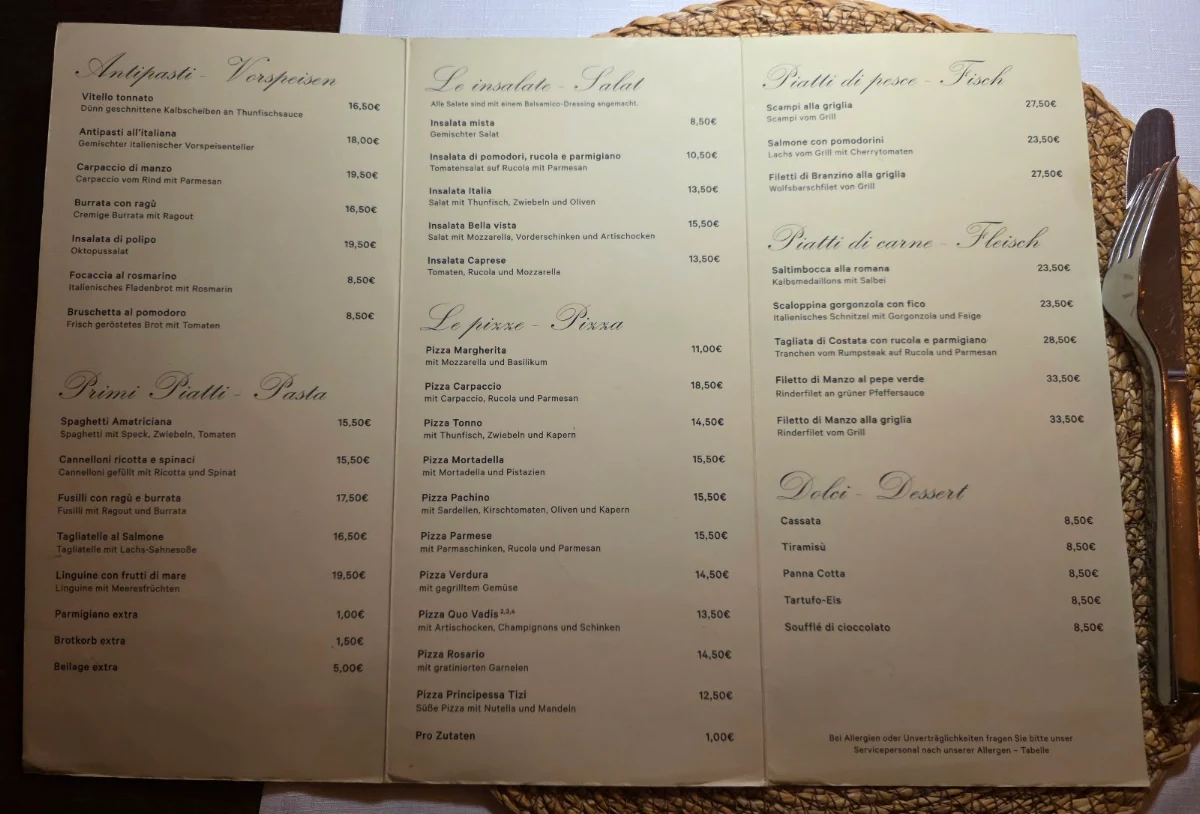 Antipasti - Vorspeisen
Vitello tonnato 16,50€
Dünn geschnittene Kalbscheiben an Thunfischsauce
Antipasti all'italiana 18,00€
Gemischter Italienischer Vorspeisenteller
Carpaccio di manzo 19,50€
Carpaccio vom Rind mit Parmesan
Burrata con ragù 16,50€
Cremige Burrata mit Ragout
Insalata di polipo 19,50€
Oktopussalat
Focaccia al rosmarino 8,50€
Italienisches Fladenbrot mit Rosmarin
Bruschetta al pomodoro 8,50€
Frisch geröstetes Brot mit Tomaten
Primi Piatti - Pasta
Spaghetti Amatriciana 15,50€
Spaghetti mit Speck, Zwiebeln, Tomaten
Cannelloni ricotta e spinaci 15,50€
Cannelloni gefüllt mit Ricotta und Spinat
Fusilli con ragù e burrata 17,50€
Fusilli mit Ragout und Burrata
Tagliatelle al Salmone 16,50€
Tagliatelle mit Lachs-Sahnesoße
Linguine con frutti di mare 19,50€
Linguine mit Meeresfrüchten
Parmigiano extra 1,00€
Brotkorb extra 1,50€
Beilage extra 5,00€
Le insalate - Salat
Alle Salate sind mit einem Balsamico-Dressing angemacht.
Insalata mista 8,50€
Gemischter Salat
Insalata di pomodori, rucola e parmigiano 10,50€
Tomatensalat auf Rucola mit Parmesan
Insalata Italia 13,50€
Salat mit Thunfisch, Zwiebeln und Oliven
Insalata Bella vista 15,50€
Salat mit Mozzarella, Vorderschinken und Artischocken
Insalata Caprese 13,50€
Tomaten, Rucola und Mozzarella
Le pizze - Pizza
Pizza Margherita 11,00€
mit Mozzarella und Basilikum
Pizza Carpaccio 18,50€
mit Carpaccio, Rucola und Parmesan
Pizza Tonno 14,50€
mit Thunfisch, Zwiebeln und Kapern
Pizza Mortadella 15,50€
mit Mortadella und Pistazien
Pizza Pachino 15,50€
mit Sardellen, Kirschtomaten, Oliven und Kapern
Pizza Parmese 15,50€
mit Parmaschinken, Rucola und Parmesan
Pizza Verdura 14,50€
mit gegrilltem Gemüse
Pizza Quo Vadis 2,3,4 13,50€
mit Artischocken, Champignons und Schinken
Pizza Rosario 14,50€
mit gratinierten Garnelen
Pizza Principessa Tizi 12,50€
Süße Pizza mit Nutella und Mandeln
Pro Zutaten 1,00€
Piatti di pesce - Fisch
Scampi alla griglia 27,50€
Scampi vom Grill
Salmone con pomodorini 23,50€
Lachs vom Grill mit Cherrytomaten
Filetti di Branzino alla griglia 27,50€
Wolfsbarschfilet von Grill
Piatti di carne - Fleisch
Saltimbocca alla romana 23,50€
Kalbsmedaillons mit Salbei
Scaloppina gorgonzola con fico 23,50€
Italienisches Schnitzel mit Gorgonzola und Feige
Tagliata di Costata con rucola e parmigiano 28,50€
Tranchen vom Rumpsteak auf Rucola und Parmesan
Filetto di Manzo al pepe verde 33,50€
Rinderfilet an grüner Pfeffersauce
Filetto di Manzo alla griglia 33,50€
Rinderfilet vom Grill
Dolci - Dessert
Cassata 8,50€
Tiramisù 8,50€
Panna Cotta 8,50€
Tartufo-Eis 8,50€
Soufflé di cioccolato 8,50€
Bei Allergien oder Unverträglichkeiten fragen Sie bitte unser
Servicepersonal nach unserer Allergen – Tabelle